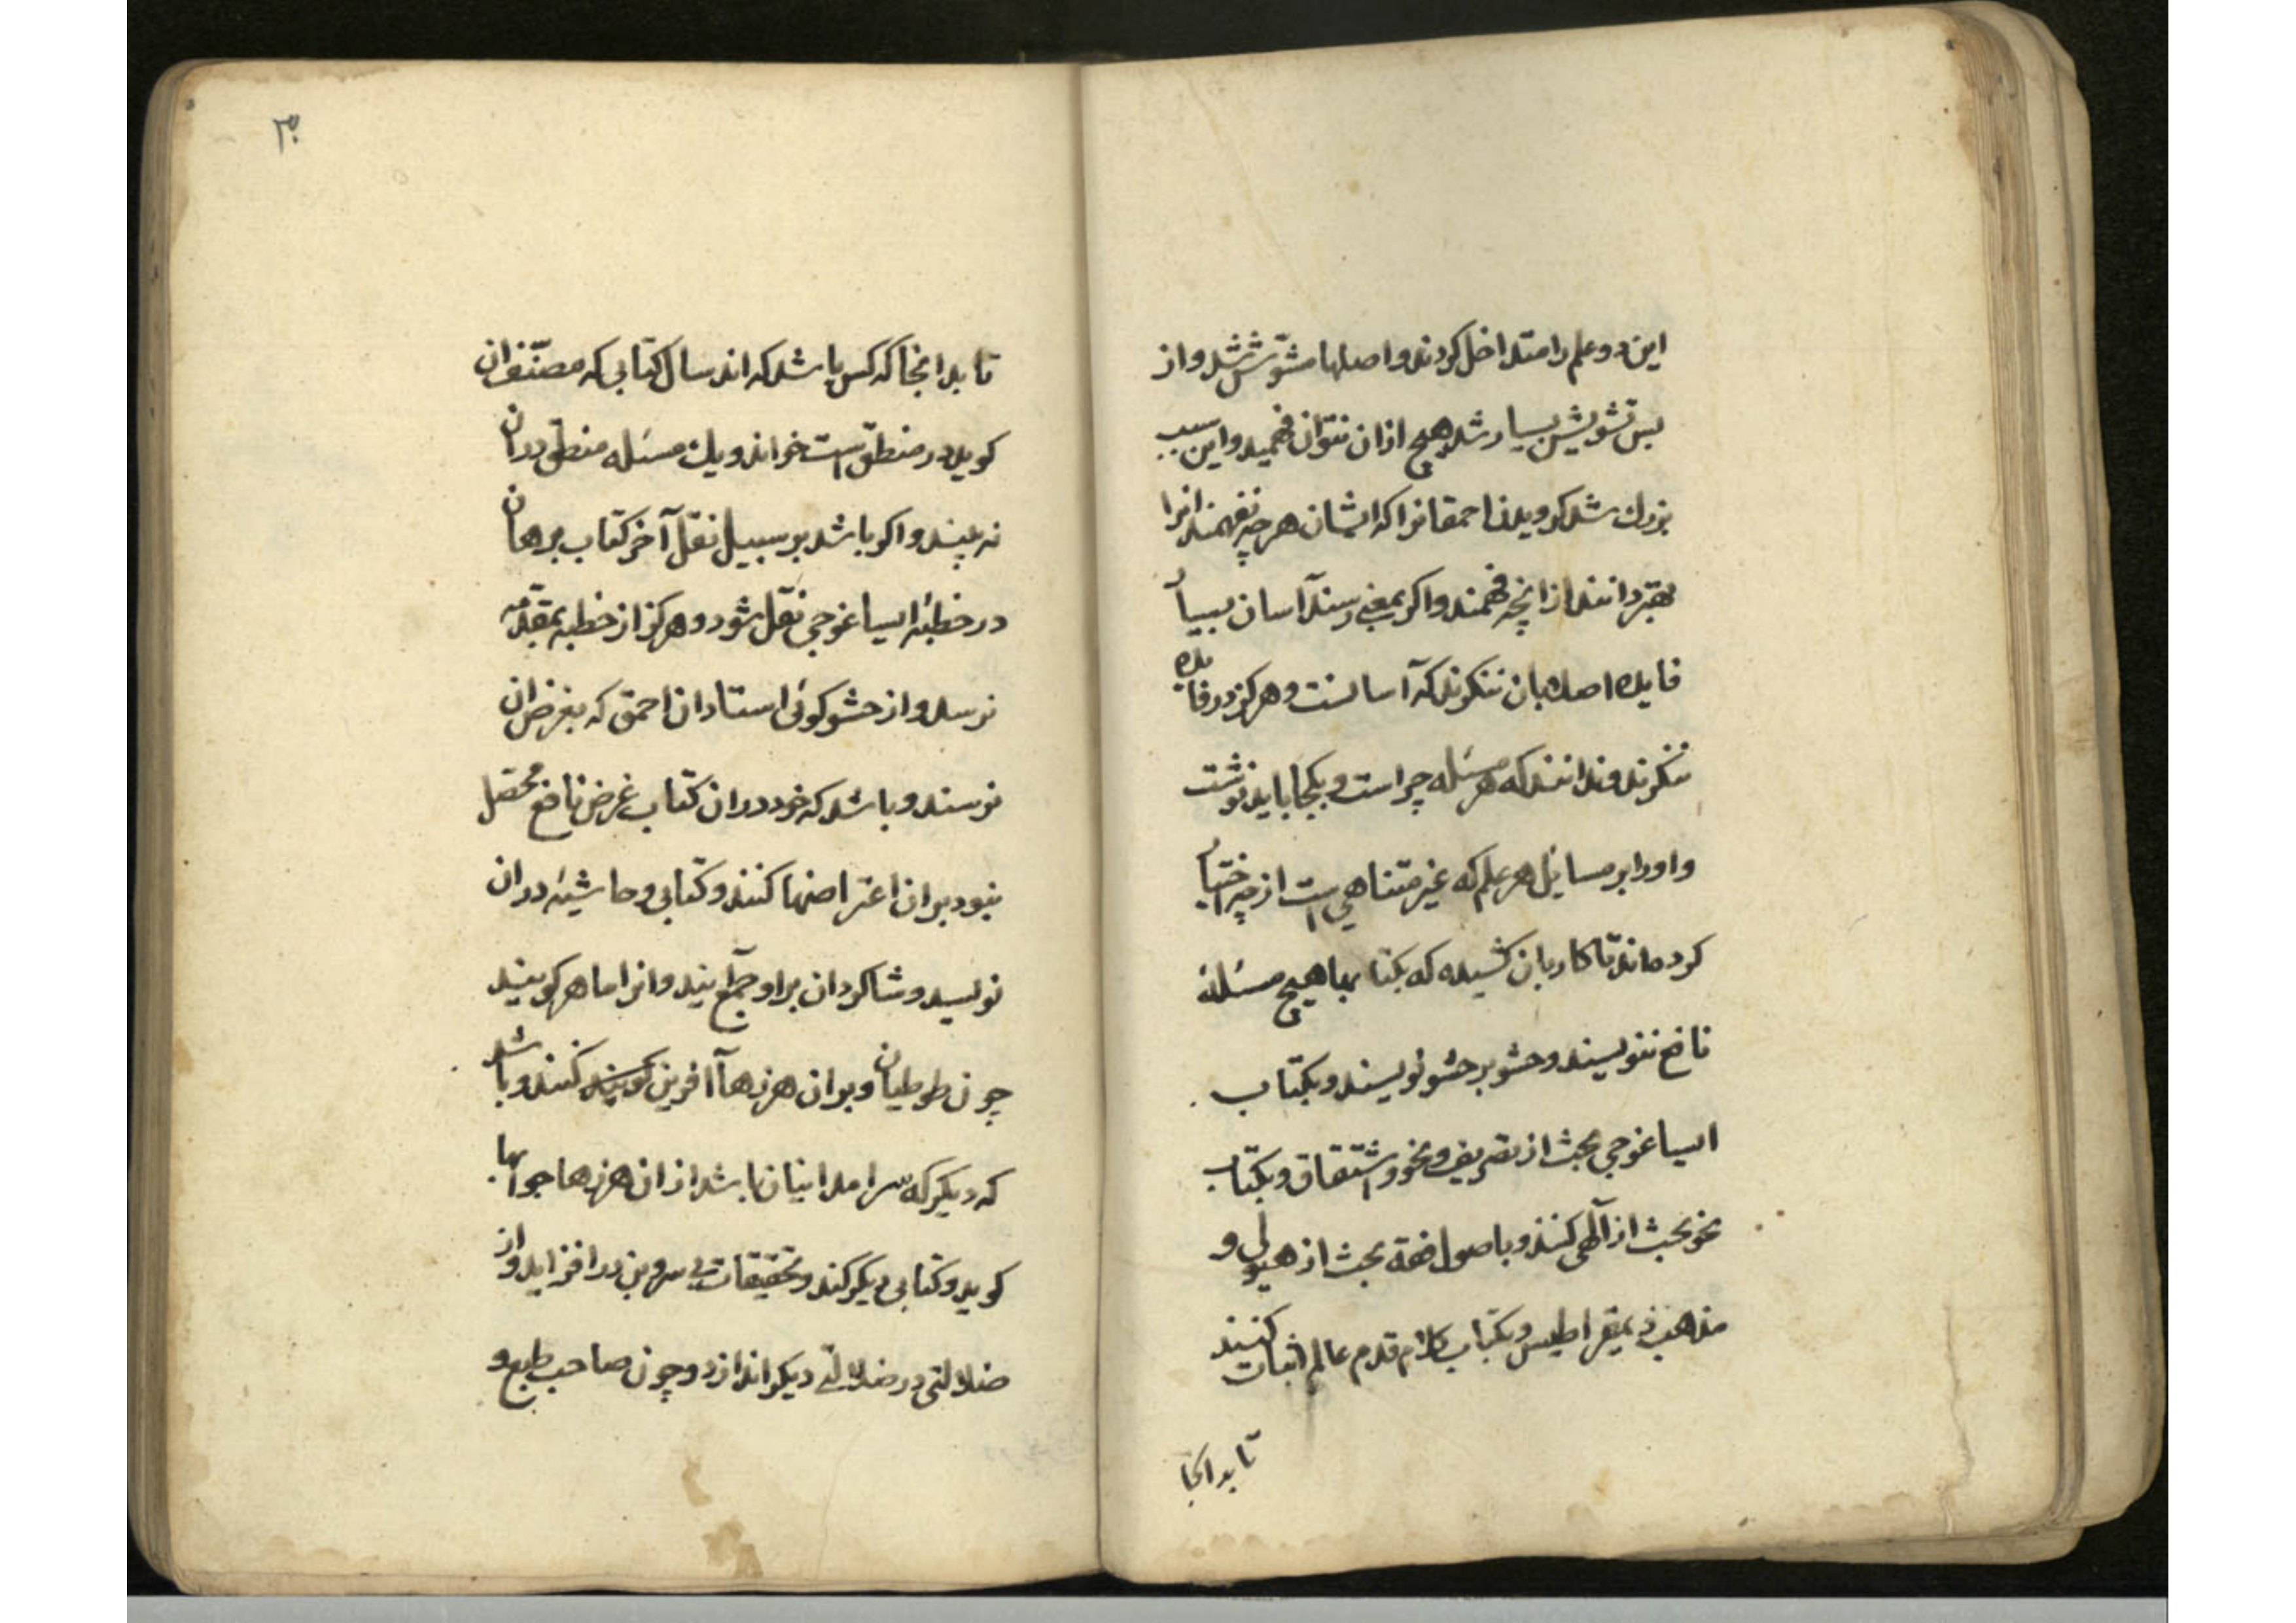 این دو علم را متداخل کردند و اصلها مشوّش شد و از
بس تشویش بسیار شد هیچ ازان نتوان فهمید و این سبب
بزرك شد کرویدن احمقانرا که ایشان هر چه نفهمند انرا
بهتر دانند از انچه فهمند و اکر بمعنی رسند آسان بسیار
فایده اصلا بان ننکرند که آسانست و هرکز در فایده
ننکرند و ندانند که هر مسئله چراست و بکجا باید نوشت
و اورا بر مسایل هر علم که غیر متناهی است از چه اختیار
کرده اند تا کار بان کشیده که بکتابها هیچ مسئلۀ
نافع ننویسند و حشو بر حشو نویسند و بکتاب
ایساغوجی بحث از تصریف و نحو و اشتقاق و بکتاب
نحو بحث از آلهی کنند و باصول فقه بحث از هیولی و
مذهب ذیمقراطیس و بکتاب کلام قدم عالم اثبات کنند
تا بدانجا
۳۰
تا بدانجا که کس باشد که اند سال کتابی که مصنّف ان
کوید در منطق است خواند و یك مسئله منطق دران
نه بیند و اکر باشد بر سبیل نقل آخر کتاب برهان
در خطبۀ ایساغوجی نقل شود و هرکز از خطبه بمقدّمه
نرسد و از حشو کوئی استادان احمق که بغرض ان
نرسند و باشد که خود دران کتاب غرض نافع محصّل
نبود بران اعتراضها کنند و کتابی و حاشیۀ دران
نویسد و شاکردان بر او جمع آیند و انرا ماهر کویند
چون طوطیان و بران هرزها آفرین کویند کنند و باشد
که دیکر که سرامد اینان باشد از ان هرزها جوابها
کوید و کتابی دیکر کند و تحقیقات بی سر و بن در افزاید و از
ضلالتی در ضلالتی دیکر اندازد و چون صاحب طبع و